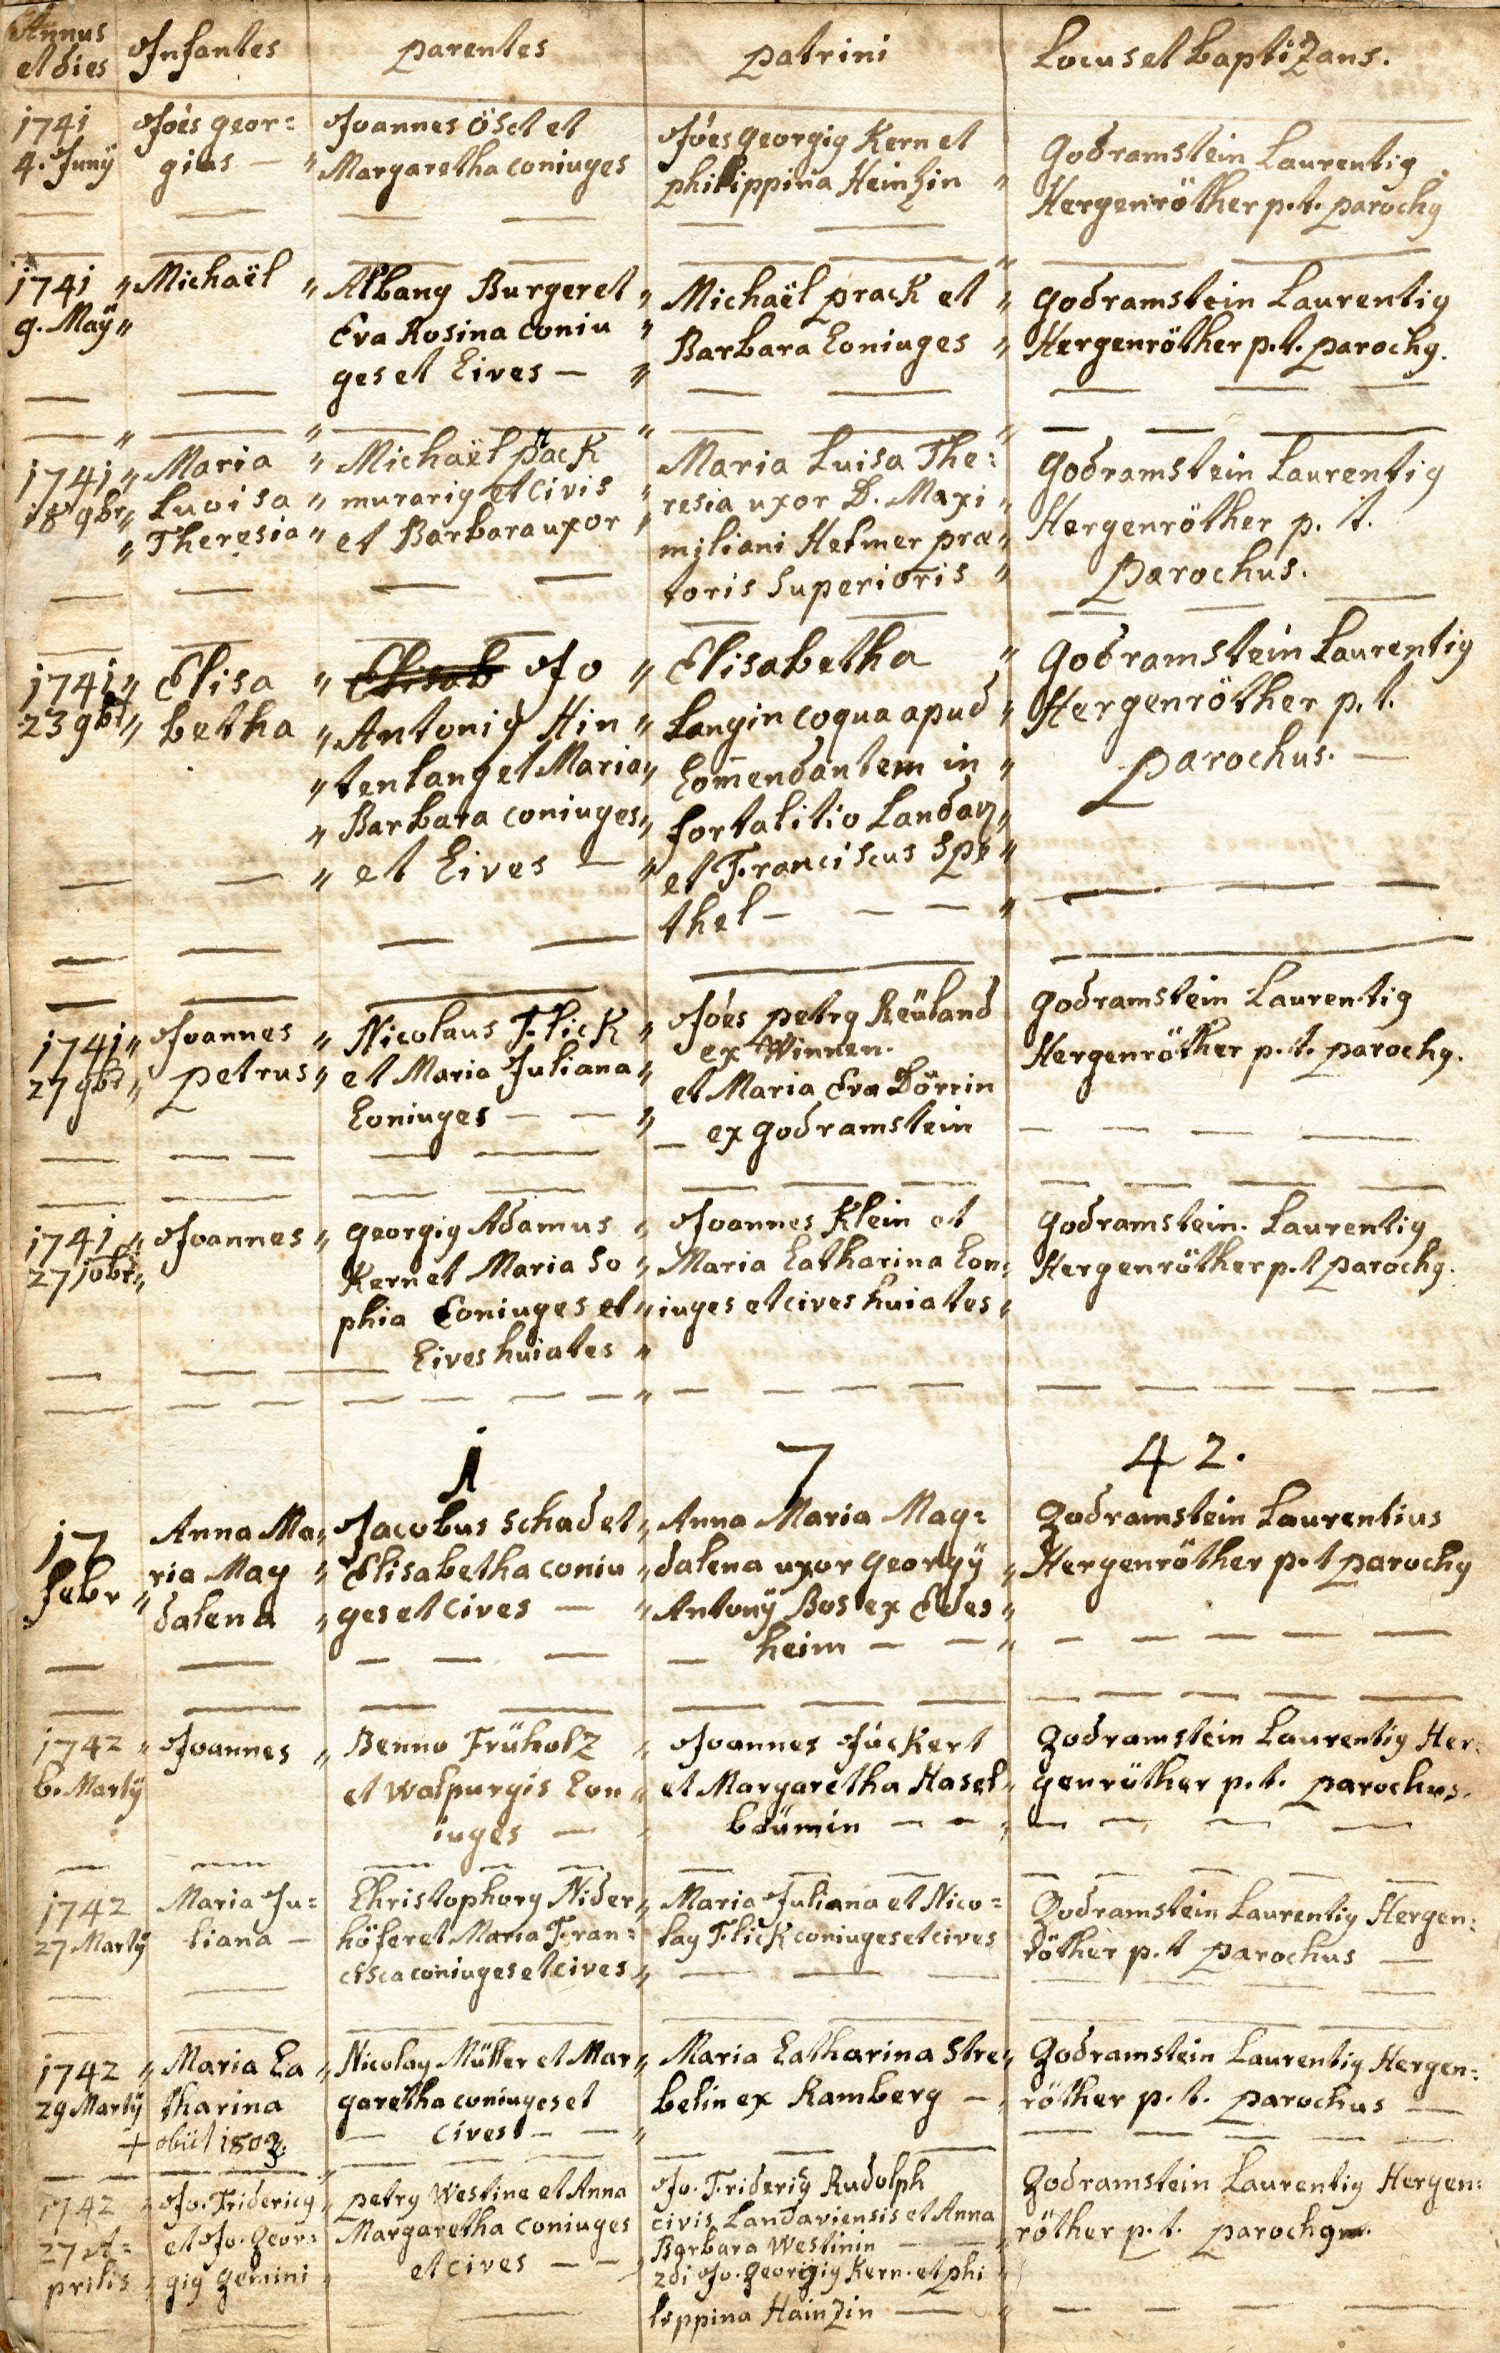 Annus et dies
Infantes
parentes
patrini
Locus et baptizans.
1741
4. Juny
Jőes geor=
gius —
Joannes Öset et
Margaretha coniuges
Jőes georgig Kern et
philippina Heinzin
godramstein Laurentig
Hergenröther p. t. parochg
1741
9. Maÿ
Michaël
Albang Burger et
Eva Rosina coniu
ges et Cives —
Michaël prack et
Barbara Coniuges
godramstein Laurentig
Hergenröther p. t. parochg.
1741
18 9br
Maria
Luoisa
Theresia
Michaël
murarig et civis
et Barbara uxor
Maria Luisa The=
resia uxor D. Maxi
miliani Helmer præ
toris Superioris
godramstein Laurentig
Hergenröther p. t.
Parochus.
1741
23 9br
Elisa
betha
Elisab Jo
Antonig Hin
tenlang et Maria
Barbara coniuges
et Cives —
Elisabetha
Langin coqua apud
Com̄endantem in
fortalitio
et Franciscus Spe
thel —
godramstein Laurentig
Hergenröther p. t.
Parochus. —
1741
27 9br
Joannes
petrus
Nicolaus Flick
et Maria Juliana
Coniuges —
Jőes petrg Reüland
ex Winnen.
et Maria Eva Dörrin
ex godramstein
godramstein Laurentig
Hergenröther p. t. parochg.
1741
27 10br
Joannes
georgig Adamus
Kern et Maria So
phia Coniuges et
Cives huiates
Joannes Klein et
Maria Catharina Con=
iuges et cives huiates
godramstein. Laurentig
Hergenröther p. t parochg.
1 7 42.
17
febr
Anna Ma
ria Mag
dalena
Jacobus Schad et
Elisabetha coniu
ges et cives —
Anna Maria Mag=
dalena uxor georgÿ
Antonÿ Bos ex Edes
heim —
godramstein Laurentius
Hergenröther p. t parochg
1742
6. Martÿ
Joannes
Benno Früholz
et Walpurgis Con
iuges —
Joannes Jückert
et Margaretha Hasel
baümin —
godramstein Laurentig Her
genröther p. t. parochus.
1742
27 Martÿ
Maria Ju=
liana —
Christophorg Nider
höfer et Maria Fran=
cisca coniuges et cives
Maria Juliana et Nico=
lag Flick coniuges et cives
godramstein Laurentig Hergen=
röther p. t parochus —
1742
29 Martÿ
Maria Ca
tharina
+ obiit 1803.
Nicolag Müller et Mar
garetha coniuges et
cives —
Maria Catharina Stre
belin ex Ramberg —
godramstein Laurentig Hergen=
röther p. t. parochus —
1742
27 A=
prilis
Jo. Fridericg
et Jo. geor=
gig gemini
petrg Westine et Anna
Margaretha coniuges
et cives —
Jo. Friderig Rudolph
civis Landaviensis et Anna
Barbara Westinin —
2di Jo. georgig Kern. et phi
lippina Hainzin —
godramstein Laurentig Hergen=
röther p. t. parochg